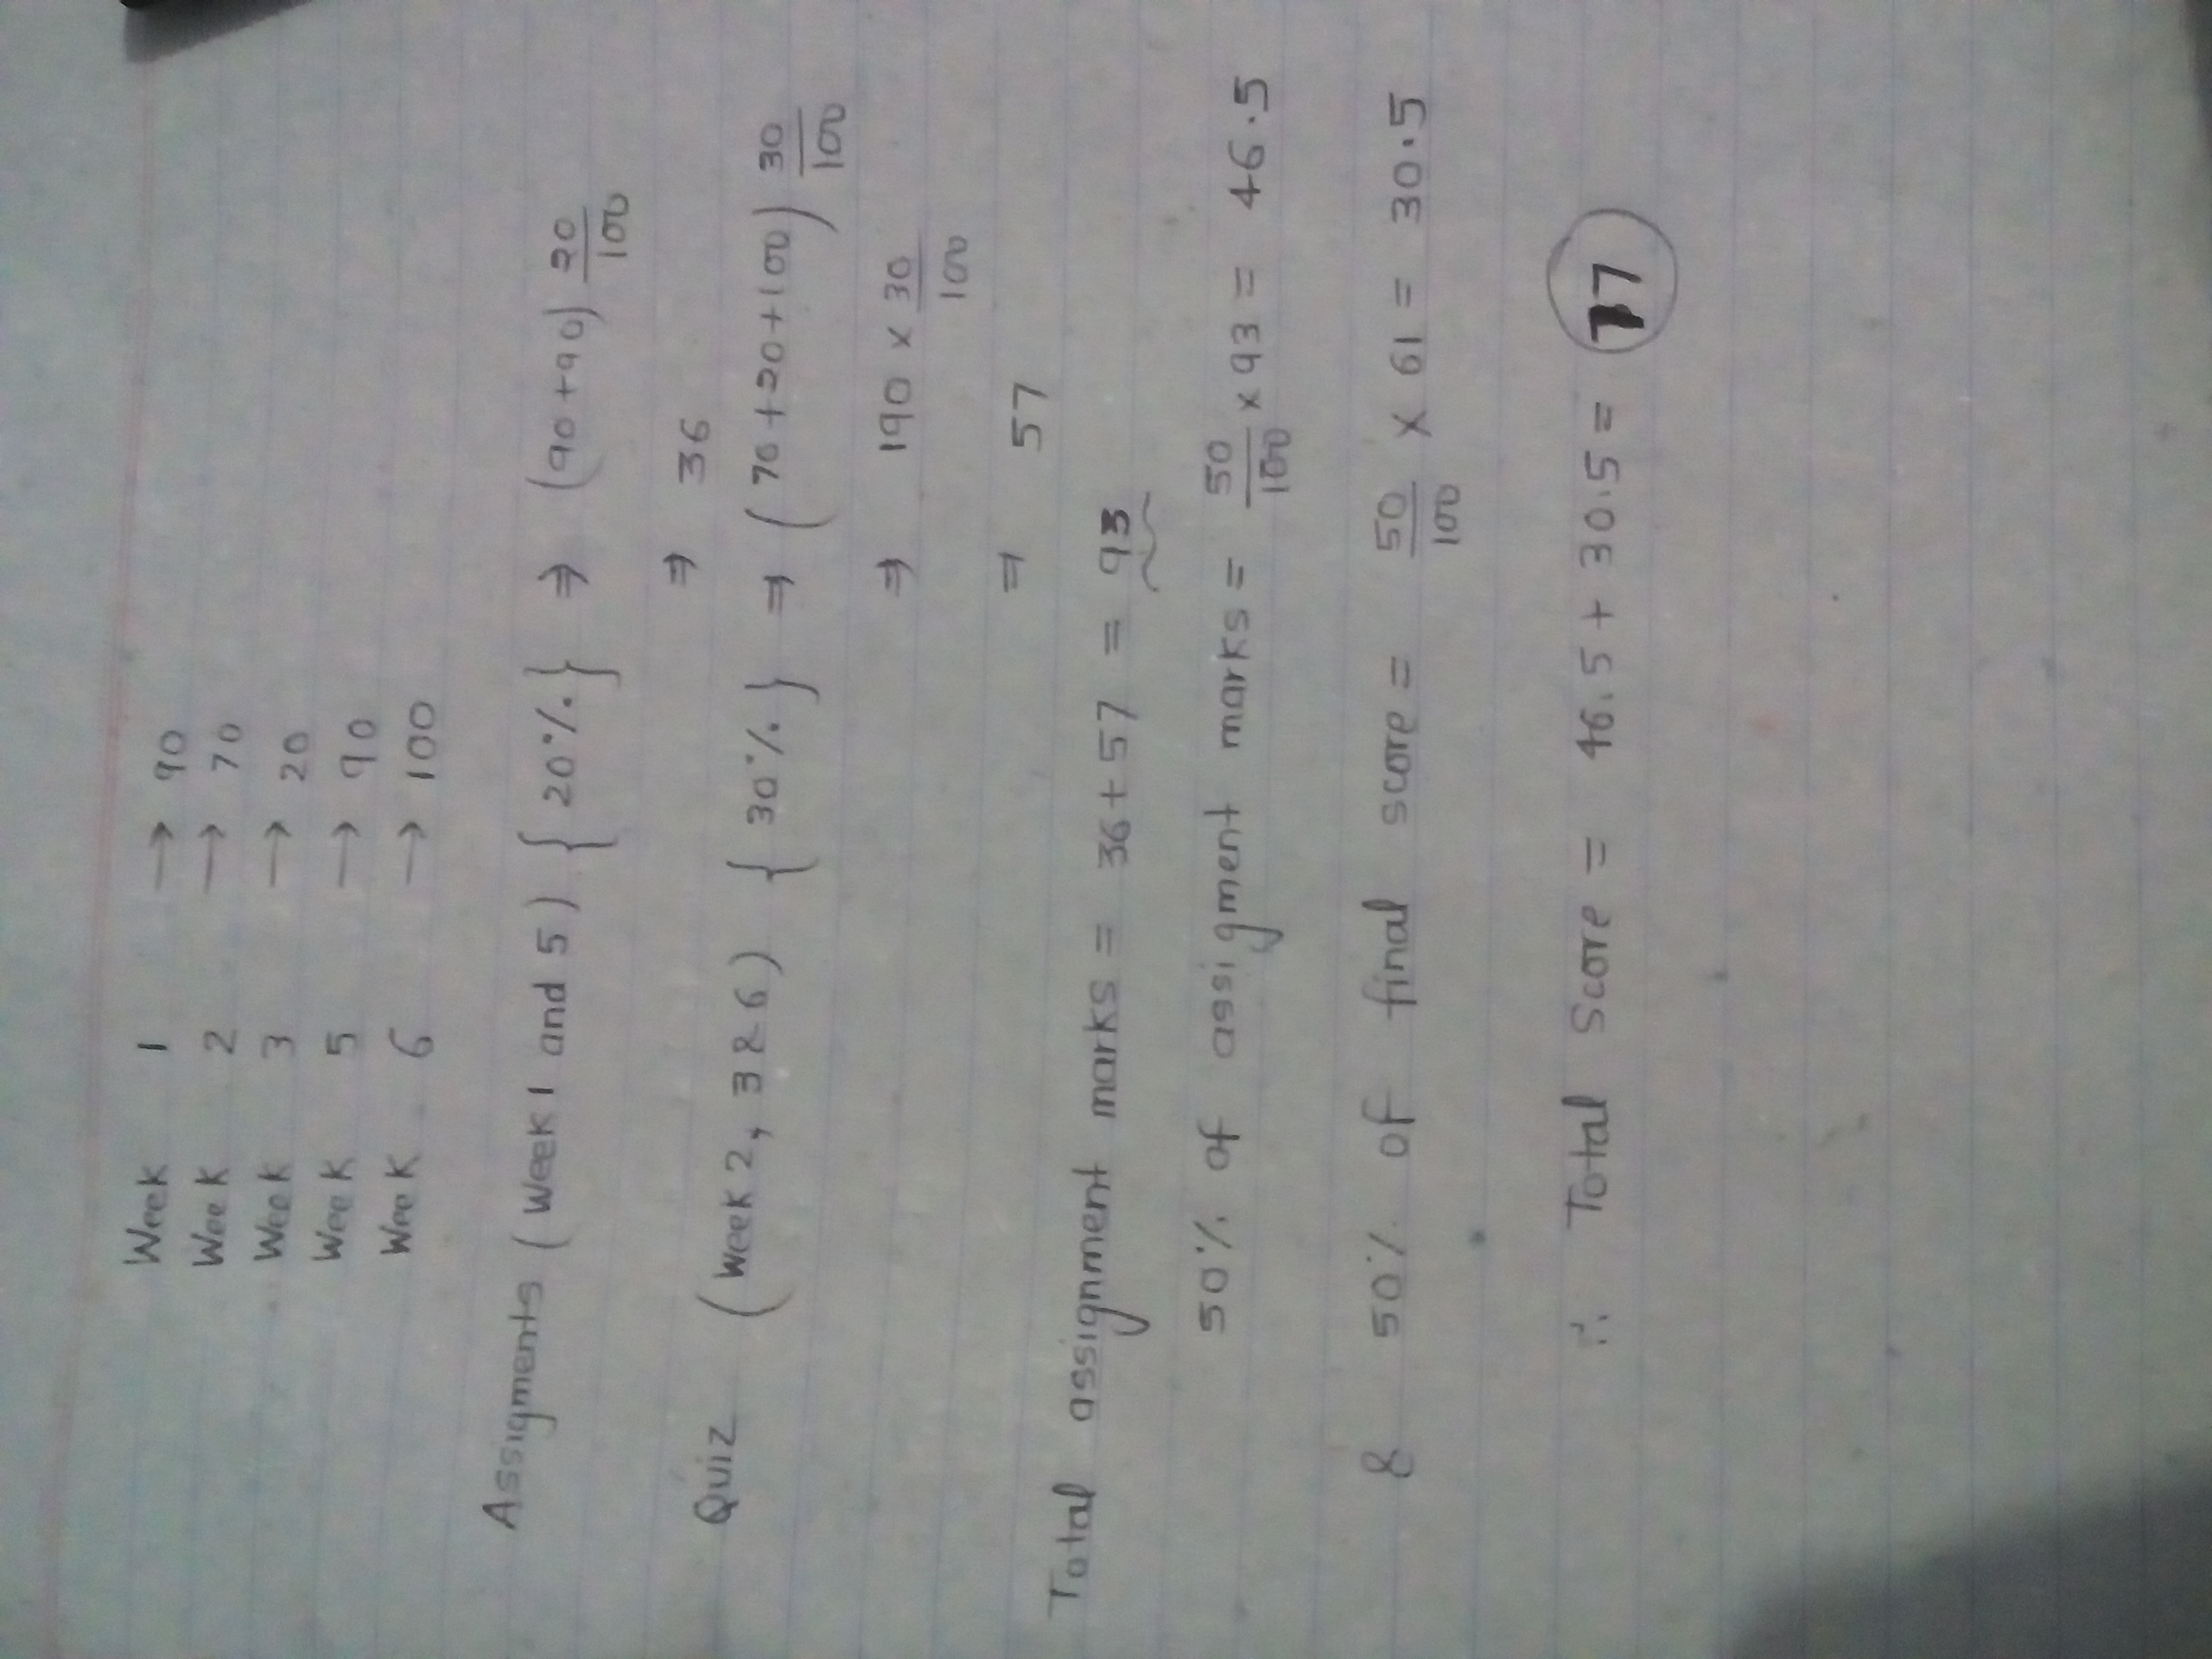 Week 1 → 90
Week 2 → 70
Week 3 → 20
Week 5 → 90
Week 6 → 100
Assigments (Week 1 and 5) {20%.} ⇒ (90+90) 20/100
⇒ 36
Quiz (Week 2, 3 & 6) {30%.} ⇒ (70+20+100) 30/100
⇒ 190 x 30/100
= 57
Total assignment marks = 36+57 = 93
50%. of assigment marks = 50/100 x 93 = 46.5
& 50%. of final score = 50/100 x 61 = 30.5
∴ Total Score = 46.5 + 30.5 = 77